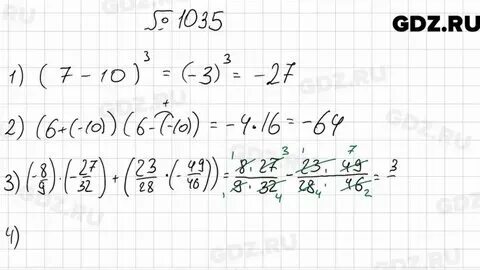 № 1035
GDZ.RU
1) (7 - 10)³ = (-3)³ = -27
2) (6+(-10)) (6-(-10)) = -4·16 = -64
3) (-8/9)·(-27/32) + (23/28·(-49/46)) = 8·27/9·32 - 23·49/28·46 = 3/
4)
GDZ.RU